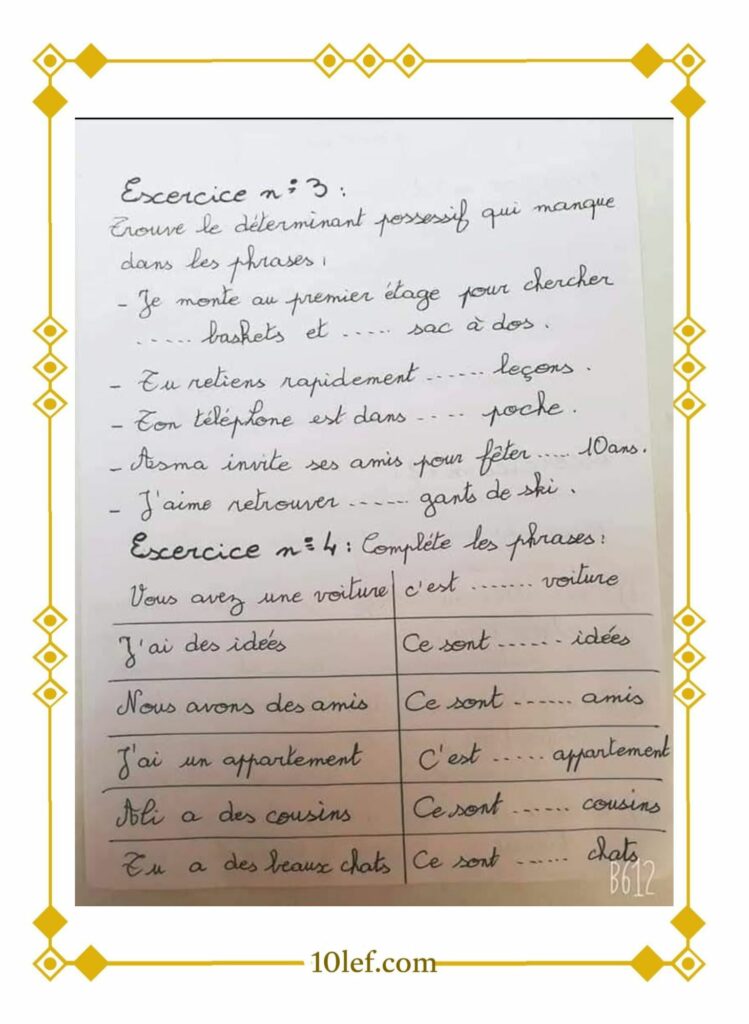 Excercice n° 3 :
Trouve le déterminant possessif qui manque
dans les phrases :
- Je monte au premier étage pour chercher
..... baskets et ..... sac à dos.
- Tu retiens rapidement ...... leçons.
- Ton téléphone est dans .... poche.
- Asma invite ses amis pour fêter ..... 10 ans.
- J'aime retrouver ...... gants de ski.
Excercice n° 4 : Compléte les phrases :
Vous avez une voiture | c'est ....... voiture
J'ai des idées | Ce sont ...... idées
Nous avons des amis | Ce sont ...... amis
J'ai un appartement | C'est ..... appartement
Ali a des cousins | Ce sont ...... cousins
Tu a des beaux chats | Ce sont ...... chats
B612
10lef.com